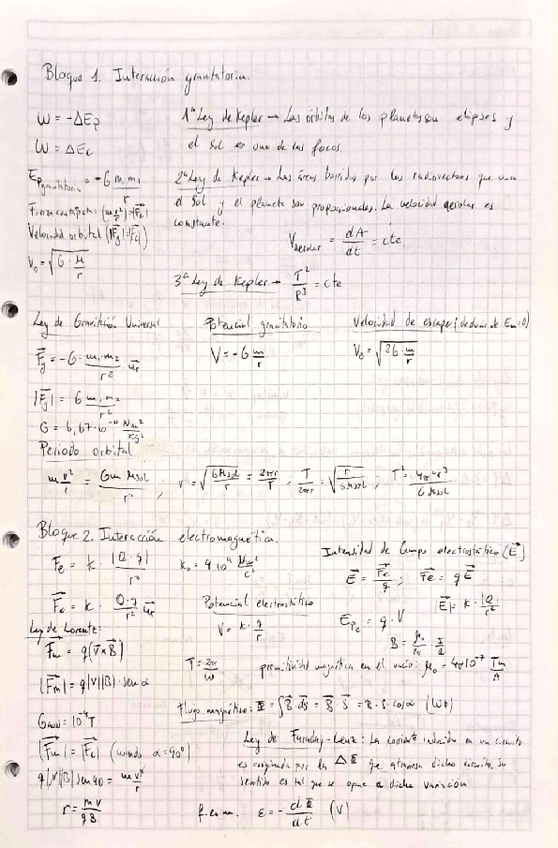 Bloque 1. Interacción gravitatoria.
W = -ΔEp
W = ΔEc
Ep gravitatoria = -G m₁m₂/r
Fuerza centrípeta: (m v²/r) = |Fc|
Velocidad orbital (|Fg| = |Fc|)
V₀ = √(G · M/r)
1ª Ley de Kepler → Las órbitas de los planetas son elipses y
el Sol es uno de los focos.
2ª Ley de Kepler → Las áreas barridas por los radiovectores que
el Sol y el planeta son proporcionales. La velocidad areolar es
constante.
V areolar = dA/dt = cte
3ª Ley de Kepler → T²/R³ = cte
Ley de Gravitación Universal
F⃗g = -G · m₁·m₂/r² · u⃗r
|F⃗g| = G m₁·m₂/r²
G = 6,67·10⁻¹¹ Nm²/Kg²
Potencial gravitatorio
V = -G m/r
Velocidad de escape (deducir de Em=0)
V₀ = √(2G m/r)
Periodo orbital
m v²/r = G m Msol/r² , v = √(G Msol/r) = 2πr/T , T/2πr = √(r/G Msol) ; T² = 4π²r³/G Msol
Bloque 2. Interacción electromagnética.
Fe = k · |Q·q|/r²
F⃗e = k · Q·q/r² u⃗r
k₀ = 9·10⁹ Nm²/C²
Potencial electrostático
V = k · q/r
Intensidad de Campo electrostático (E⃗)
E⃗ = F⃗e/q ; F⃗e = q E⃗
|E⃗| = k · |Q|/r²
Epe = q · V
Ley de Lorentz:
F⃗m = q(v⃗ × B⃗)
|F⃗m| = q|v||B| · sen α
T = 2π/ω
permitividad magnética en el vacío: μ₀ = 4π·10⁻⁷ Tm/A
Gauss = 10⁻⁴ T
Flujo magnético: Φ = ∫B⃗·dS⃗ = B⃗ · S⃗ = B · S · cos α (Wb)
|F⃗m| = |F⃗c| (cuando α = 90°)
q|v||B| sen 90 = m v²/r
r = mv/qB
Ley de Faraday-Lenz: La corriente inducida en un circuito
es originada por la ΔΦ que atraviesa dicho circuito, su
sentido es tal que se opone a dicha variación
f.e.m. ε = - dΦ/dt (V)